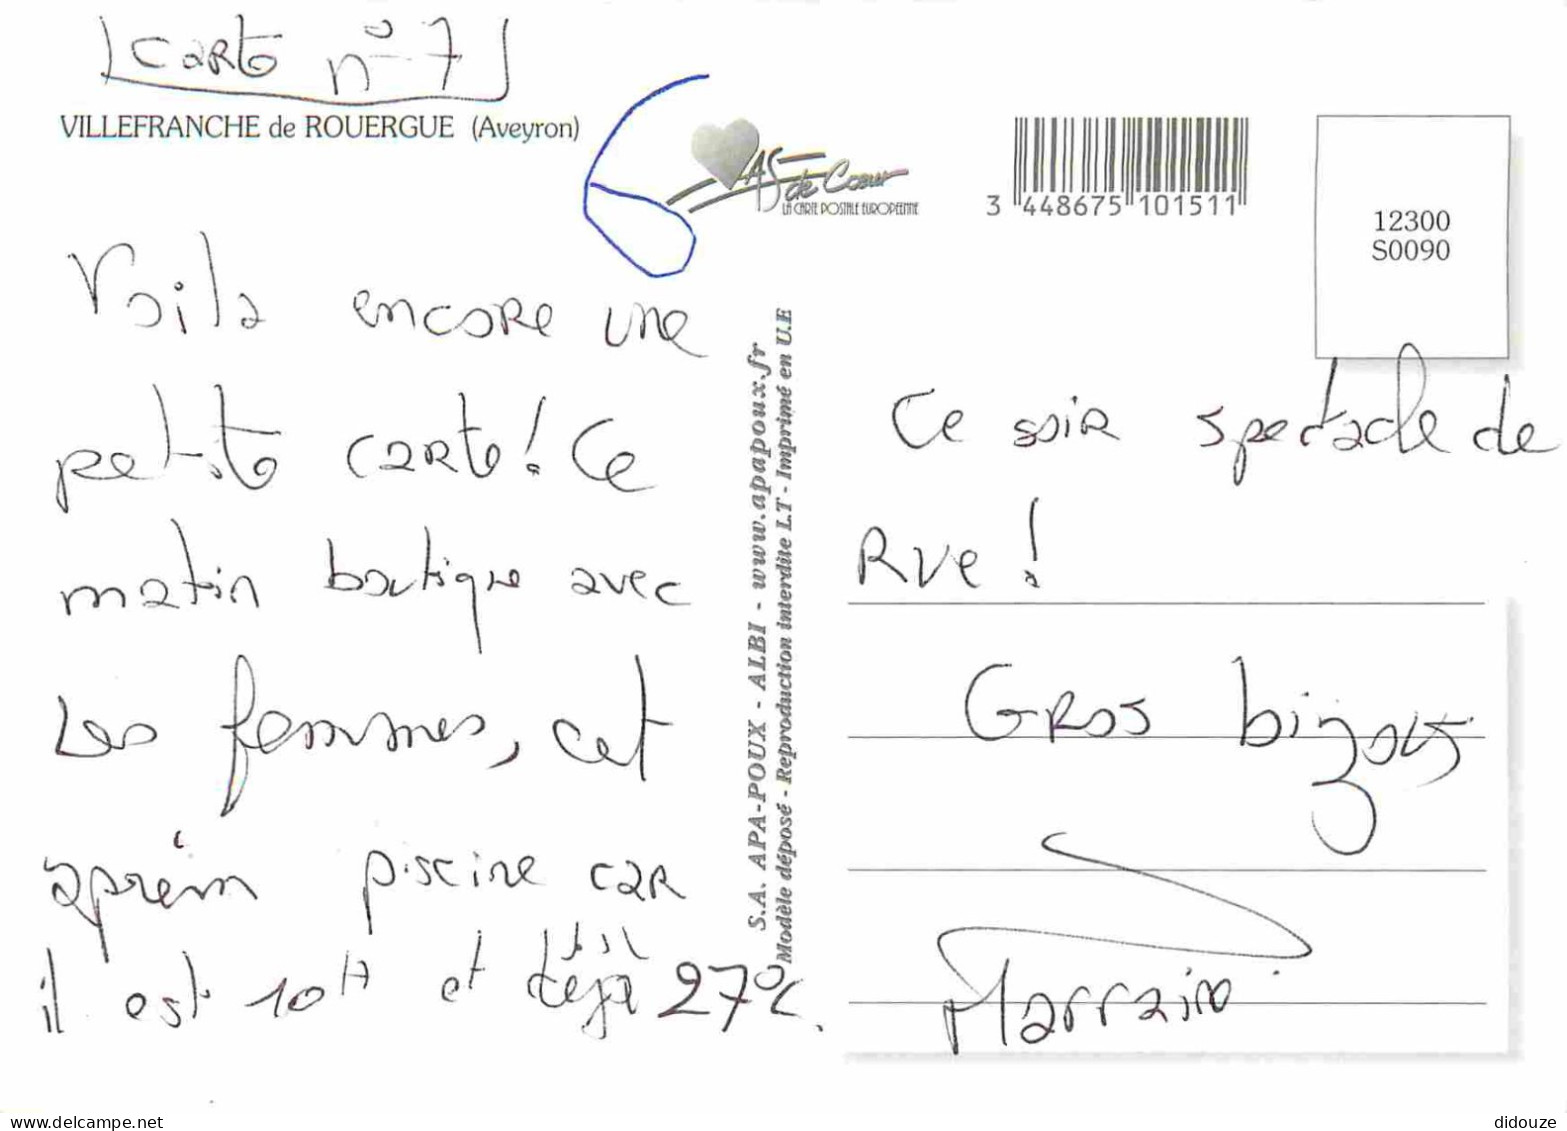 Carte n° 7
VILLEFRANCHE de ROUERGUE (Aveyron)
AS de Cœur
LA CARTE POSTALE EUROPEENNE
3 448675 101511
12300
S0090
Voila encore une
petite carte ! Ce
matin boutique avec
les femmes, cet
aprèm piscine car
il est 10H et déjà 27°C.
S.A. APA-POUX - ALBI - www.apapoux.fr
Modèle déposé - Reproduction interdite LT - Imprimé en U.E
Ce soir spectacle de
Rue !
Gros bizous
Marraine
delcampe.net
didouze